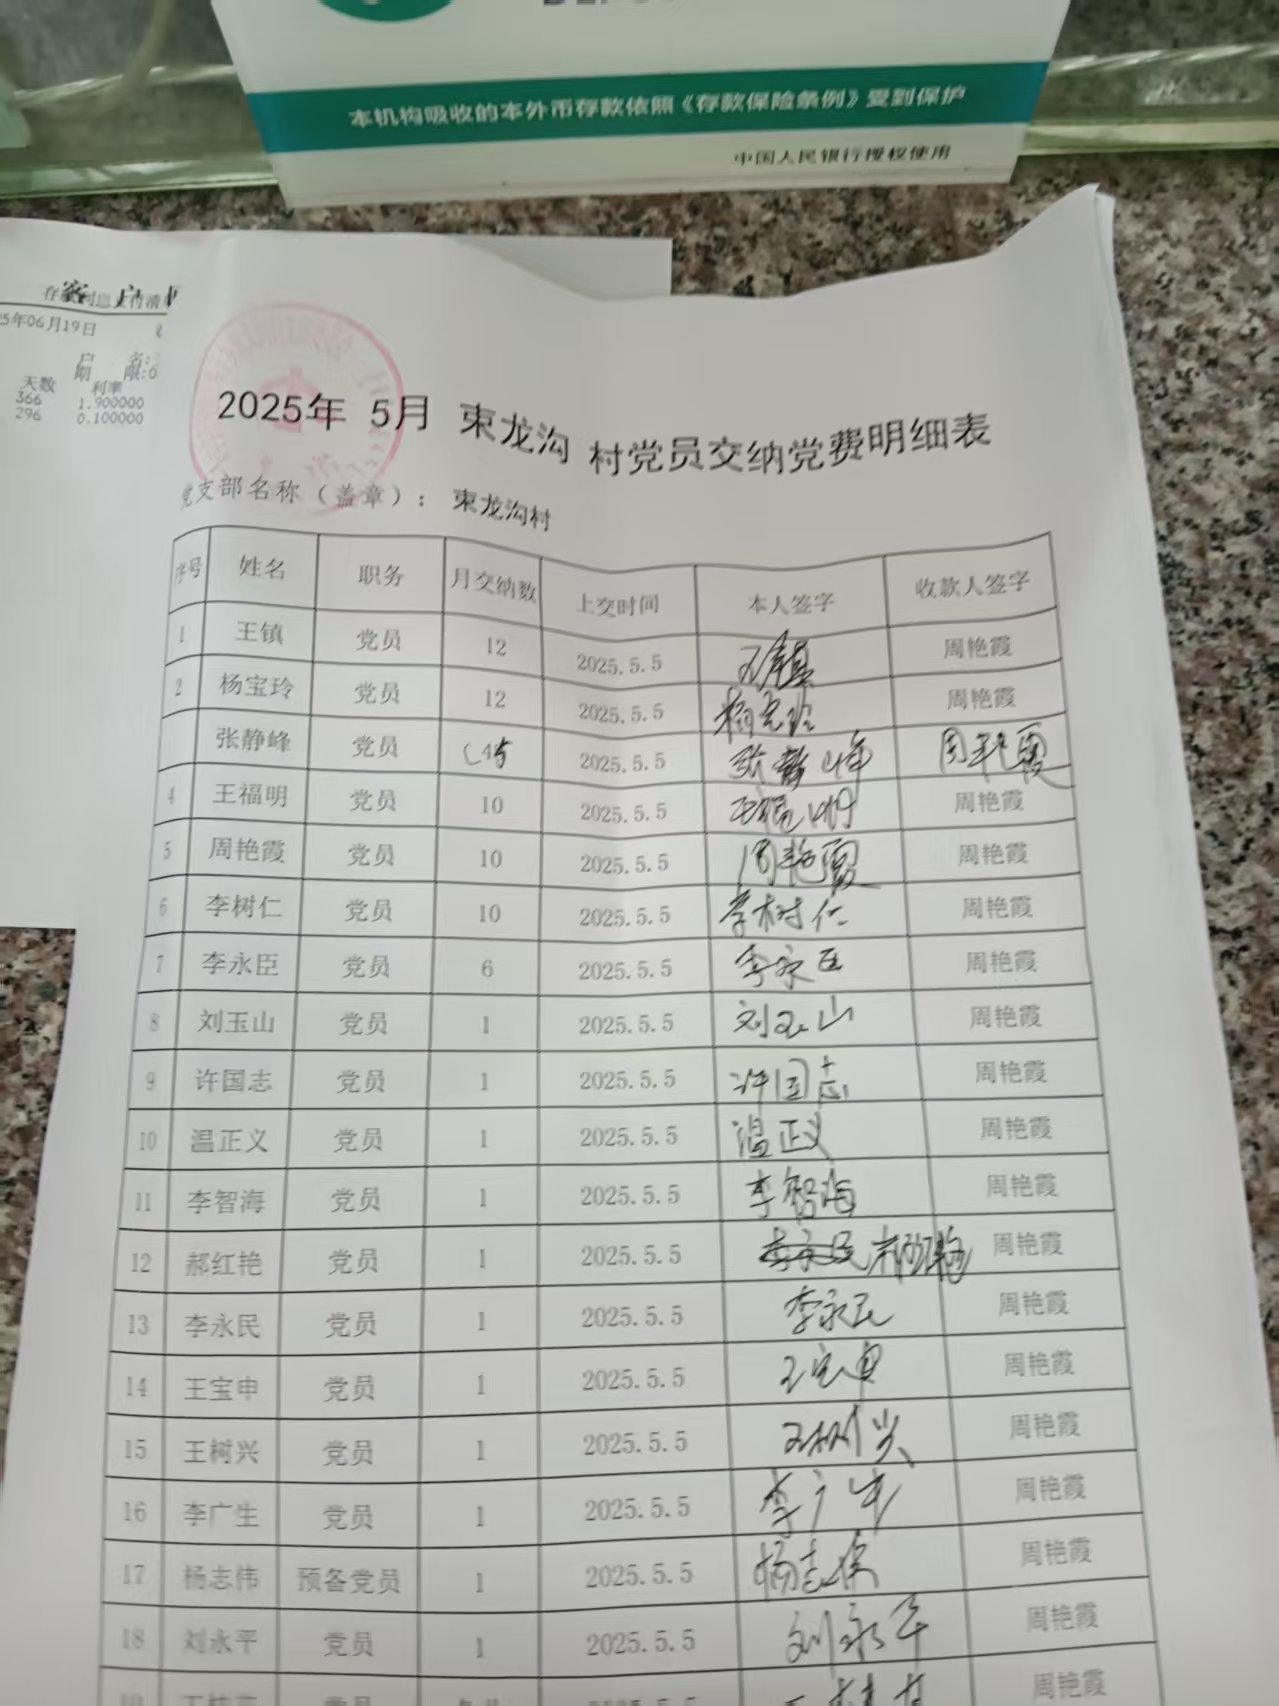 本机构吸收的本外币存款依照《存款保险条例》受到保护
中国人民银行授权使用
5年06月19日
户 名:
期 限:0
天数 利率
366 1.900000
296 0.100000
2025年 5月 束龙沟 村党员交纳党费明细表
党支部名称（盖章）： 束龙沟村
序号 姓名 职务 月交纳数 上交时间 本人签字 收款人签字
1 王镇 党员 12 2025.5.5 王镇 周艳霞
2 杨宝玲 党员 12 2025.5.5 杨宝玲 周艳霞
张静峰 党员 2025.5.5 张静峰 周艳霞
4 王福明 党员 10 2025.5.5 王福明 周艳霞
5 周艳霞 党员 10 2025.5.5 周艳霞 周艳霞
6 李树仁 党员 10 2025.5.5 李树仁 周艳霞
7 李永臣 党员 6 2025.5.5 李永臣 周艳霞
8 刘玉山 党员 1 2025.5.5 刘玉山 周艳霞
9 许国志 党员 1 2025.5.5 许国志 周艳霞
10 温正义 党员 1 2025.5.5 温正义 周艳霞
11 李智海 党员 1 2025.5.5 李智海 周艳霞
12 郝红艳 党员 1 2025.5.5 李永民 郝红艳 周艳霞
13 李永民 党员 1 2025.5.5 李永民 周艳霞
14 王宝申 党员 1 2025.5.5 王宝申 周艳霞
15 王树兴 党员 1 2025.5.5 王树兴 周艳霞
16 李广生 党员 1 2025.5.5 李广生 周艳霞
17 杨志伟 预备党员 1 2025.5.5 杨志伟 周艳霞
18 刘永平 党员 1 2025.5.5 刘永平 周艳霞
周艳霞